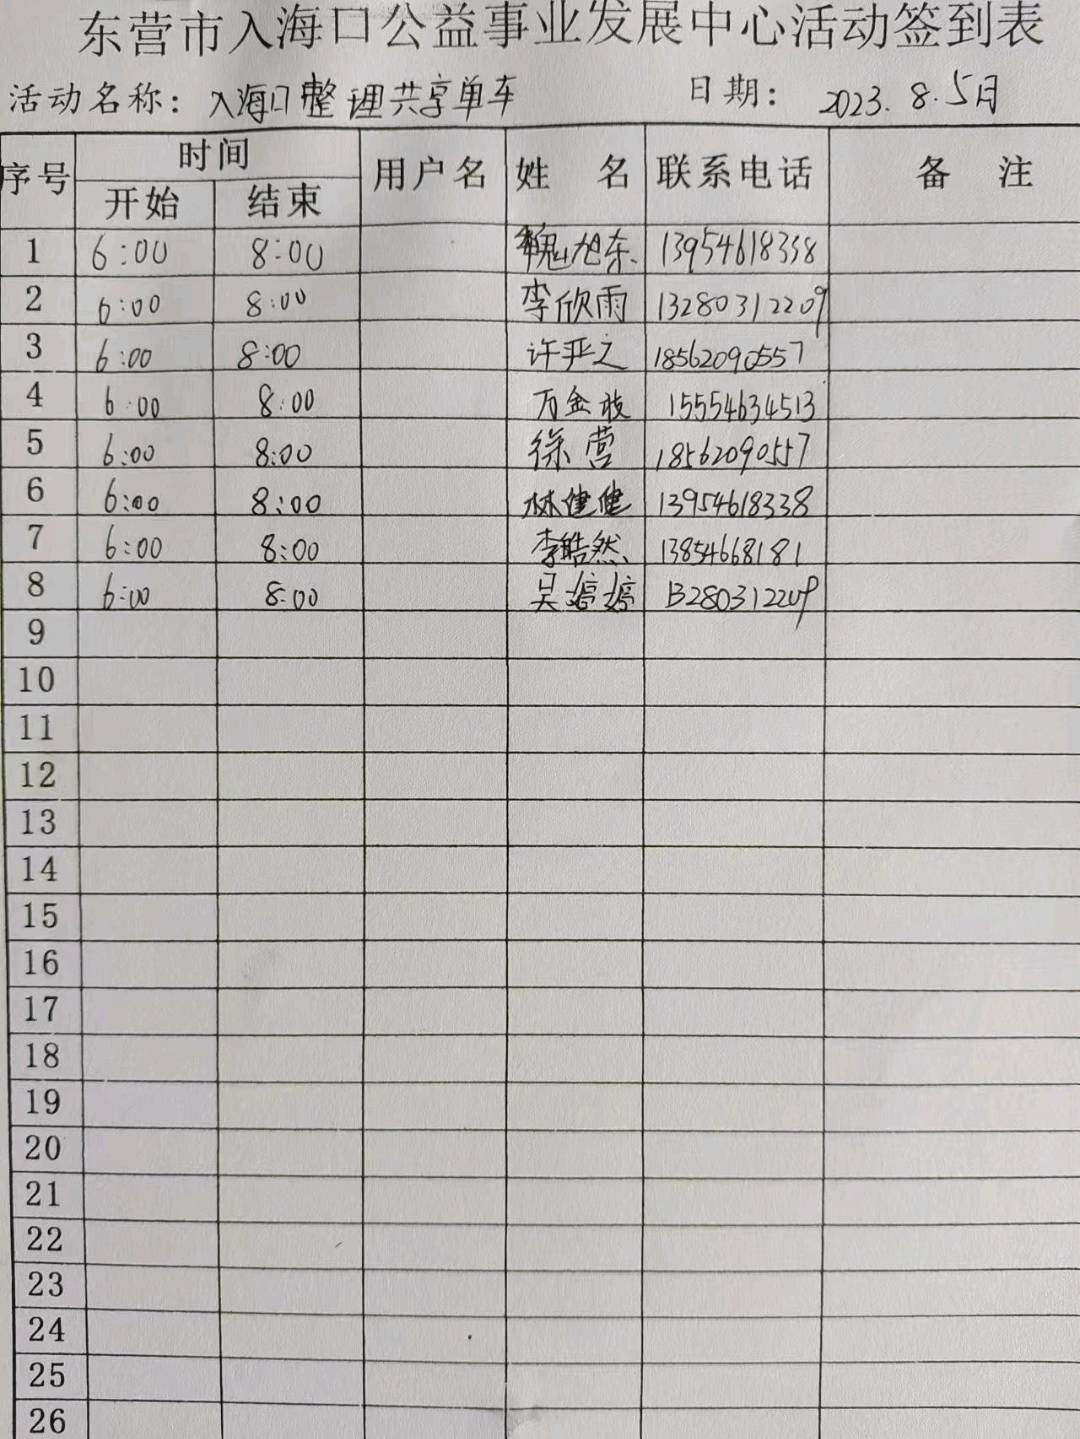 东营市入海口公益事业发展中心活动签到表
活动名称：入海口整理共享单车 日期：2023.8.5日
序号 时间 用户名 姓 名 联系电话 备 注
开始 结束
1 6:00 8:00 魏旭东 13954618338
2 6:00 8:00 李欣雨 13280312209
3 6:00 8:00 许严之 18562090557
4 6:00 8:00 万金枝 15554634513
5 6:00 8:00 徐营 18562090557
6 6:00 8:00 林健健 13954618338
7 6:00 8:00 李皓然 13854668181
8 6:00 8:00 吴婷婷 13280312209
9
10
11
12
13
14
15
16
17
18
19
20
21
22
23
24
25
26